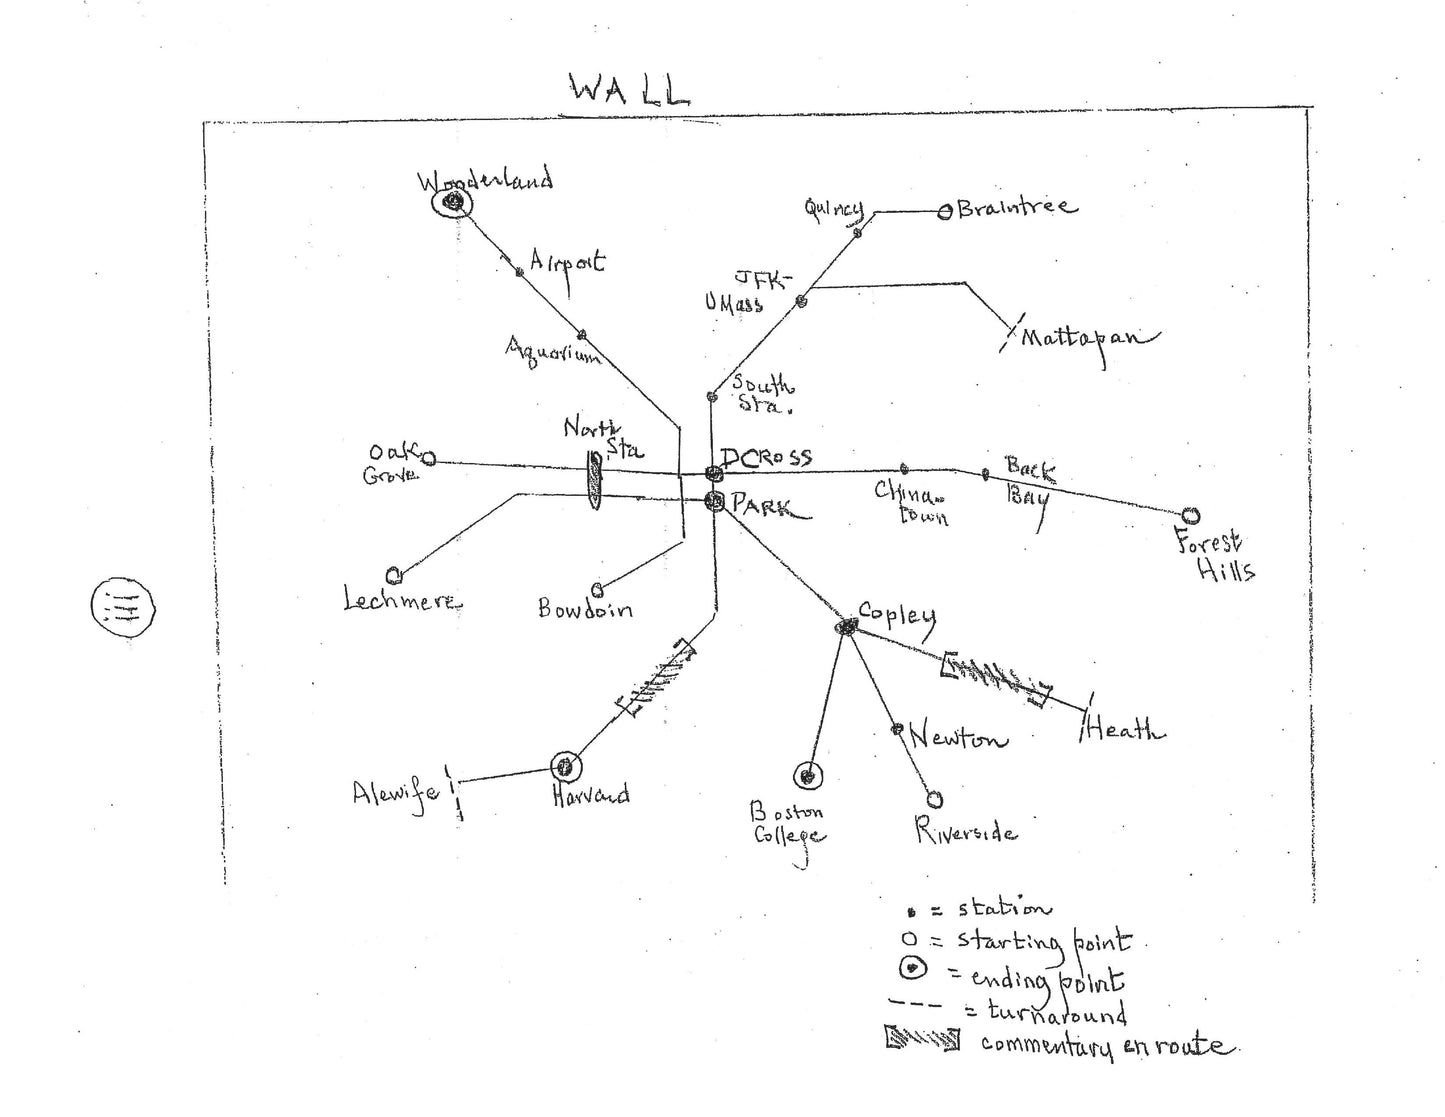 WALL
Wonderland
Quincy
Braintree
Airport
JFK-
UMass
Aquarium
Mattapan
South
Sta.
North
Sta
Oak
Grove
DCROSS
China-
town
Back
Bay
PARK
Forest
Hills
Lechmere
Bowdoin
Copley
Newton
Heath
Alewife
Harvard
Boston
College
Riverside
= station
= starting point
= ending point
= turnaround
commentary en route